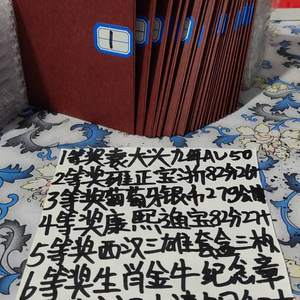 1
1等奖袁大头九年AU50
2等奖雍正宝浙82分26
3等奖葡萄牙银币279
4等奖康熙通宝82分27
5等奖西汉三雄套盒三枚
6等奖生肖金牛纪念章